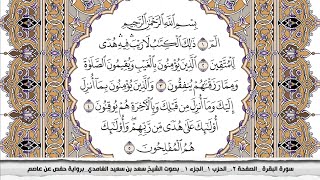 بِسْمِ اللَّهِ الرَّحْمَٰنِ الرَّحِيمِ
الٓمٓ ١ ذَٰلِكَ الْكِتَٰبُ لَا رَيْبَ فِيهِ هُدًى
لِّلْمُتَّقِينَ ٢ الَّذِينَ يُؤْمِنُونَ بِالْغَيْبِ وَيُقِيمُونَ الصَّلَوٰةَ
وَمِمَّا رَزَقْنَٰهُمْ يُنفِقُونَ ٣ وَالَّذِينَ يُؤْمِنُونَ بِمَا أُنزِلَ
إِلَيْكَ وَمَا أُنزِلَ مِن قَبْلِكَ وَبِالْءَاخِرَةِ هُمْ يُوقِنُونَ ٤
أُولَٰئِكَ عَلَىٰ هُدًى مِّن رَّبِّهِمْ وَأُولَٰئِكَ
هُمُ الْمُفْلِحُونَ ٥
سورة البقرة _ الصفحة ٢ _ الحزب ١ _ الجزء ١ _ بصوت الشيخ سعد بن سعيد الغامدي _ برواية حفص عن عاصم